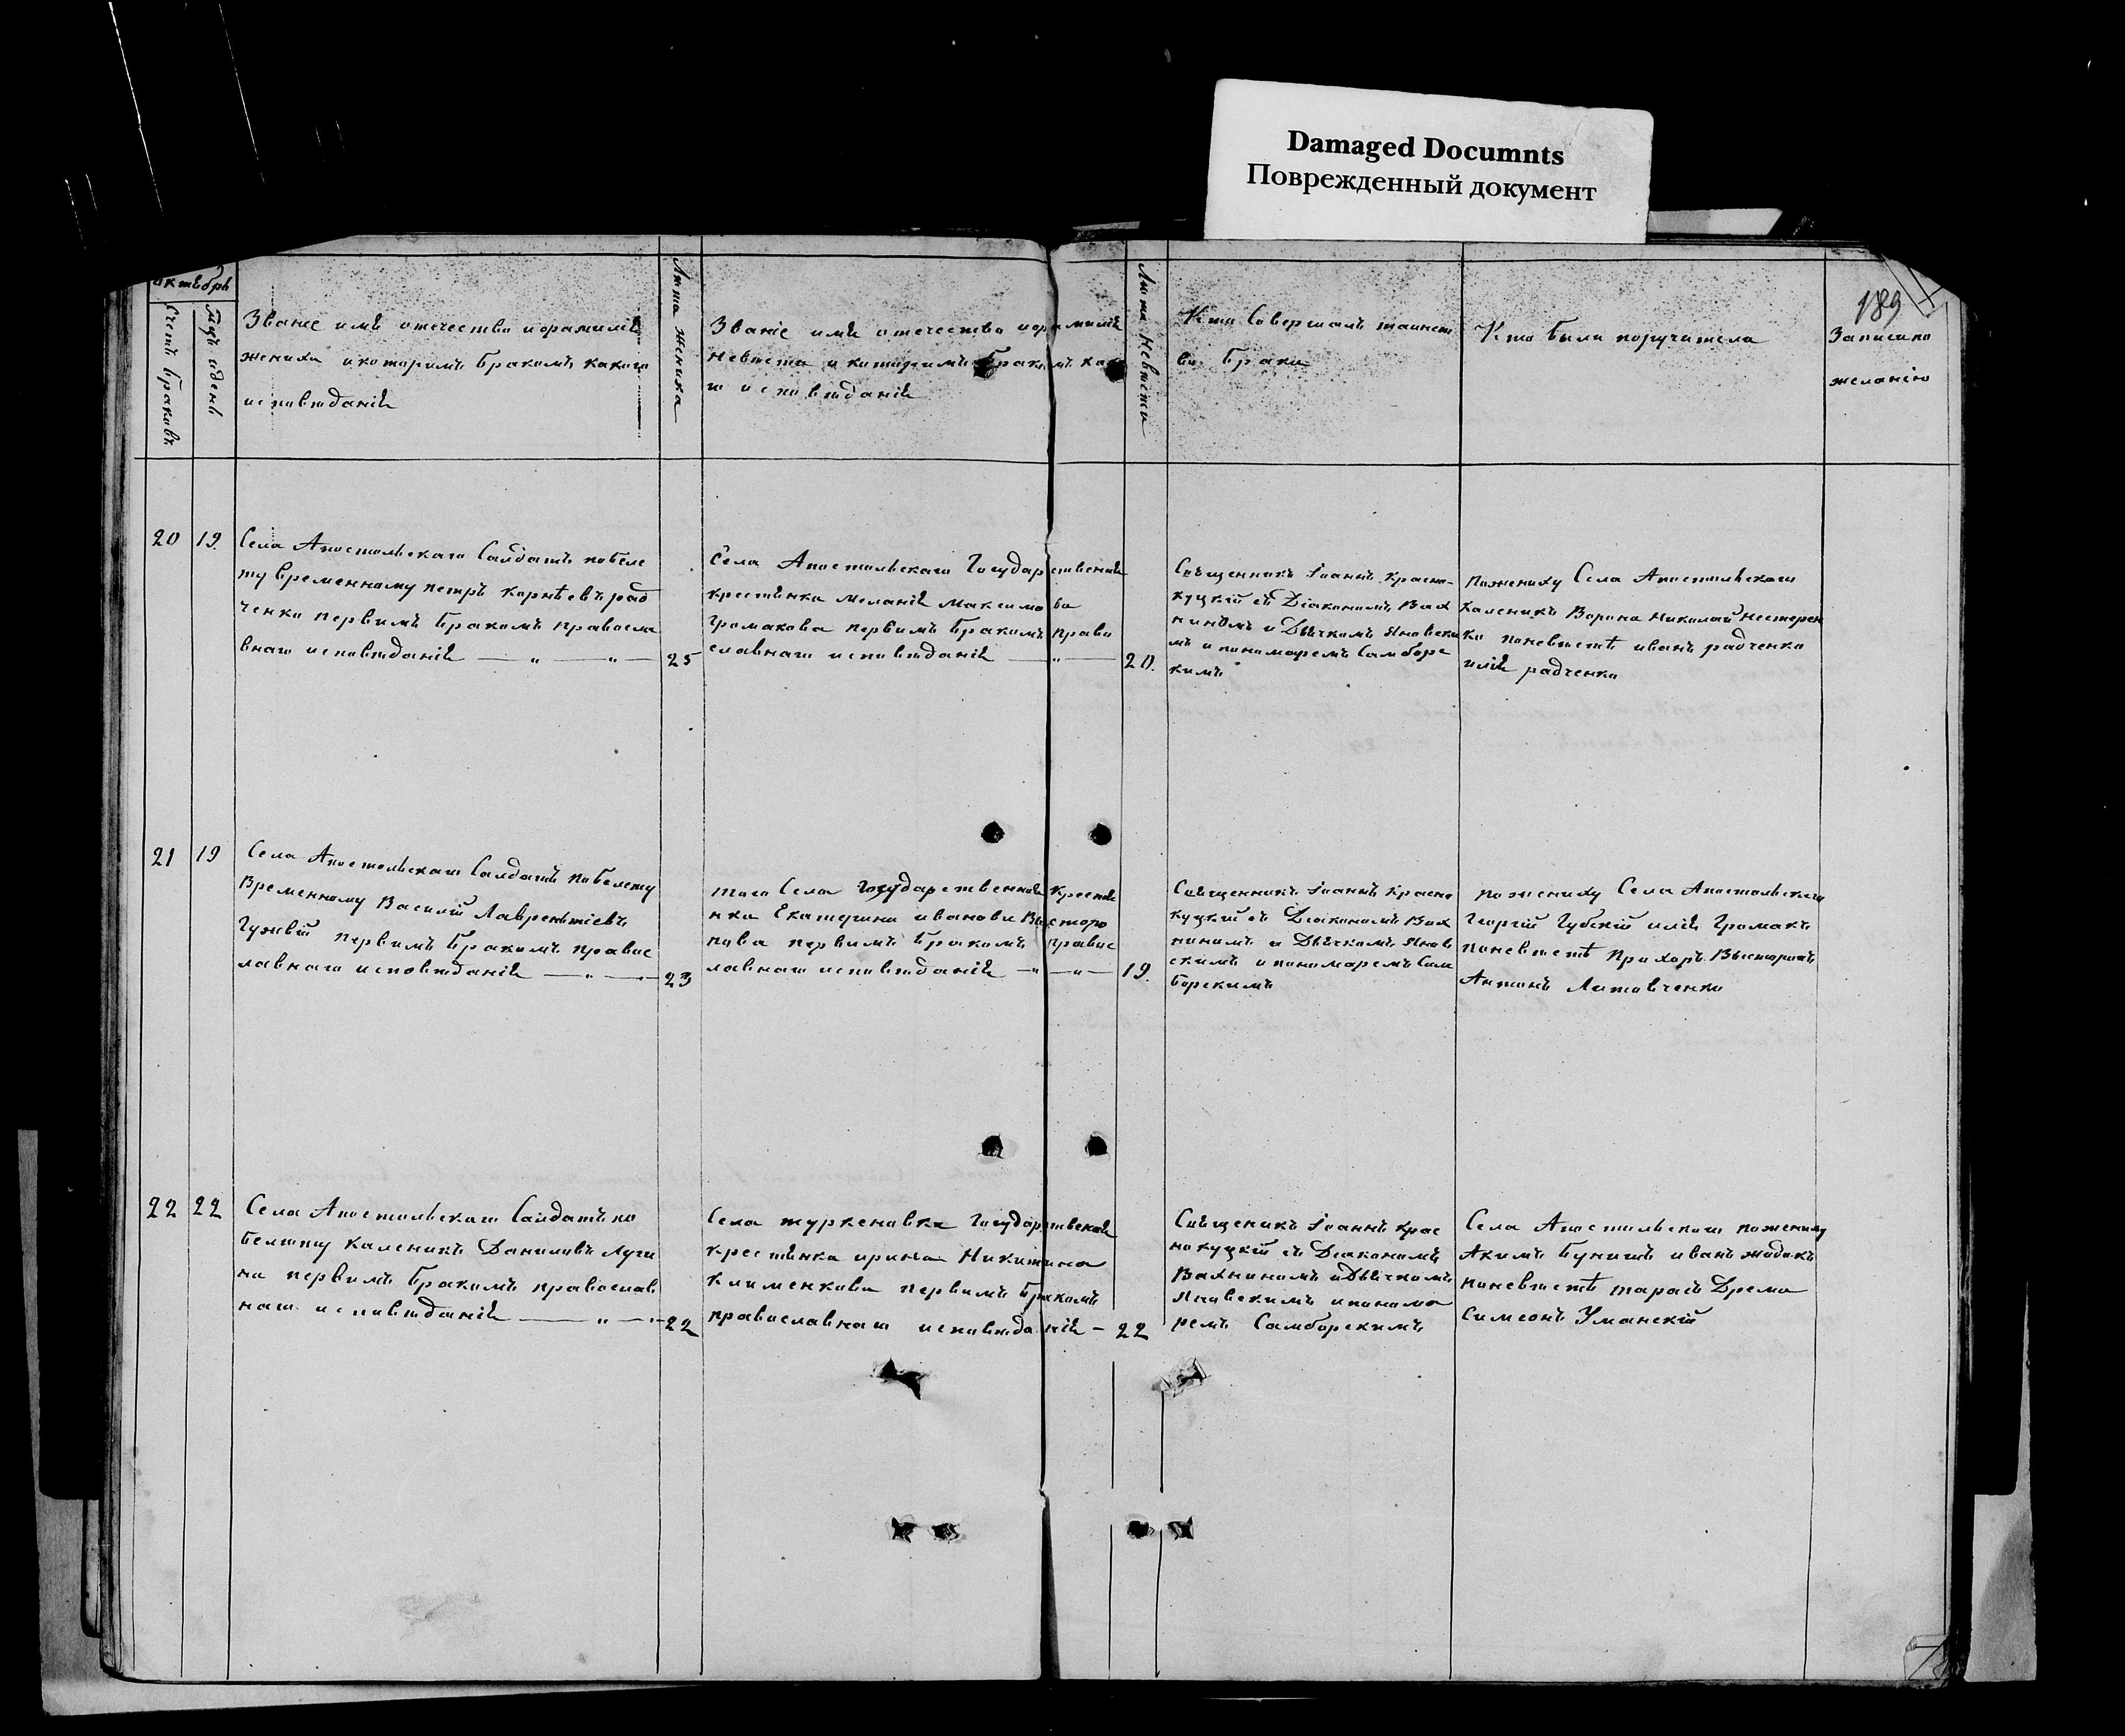 Damaged Documnts
Поврежденный документ
189
октѣбрь
Счетъ браковъ
мцъ и день
Званіе имѣ отечество и фамилій
жениха и которимъ бракомъ какого
исповѣданій
Лѣта жениха
Званіе имѣ отечество и фамилій
невѣста и которимъ бракомъ како
го исповѣданій
Лѣта невѣсти
Кто совершалъ таинст
во брака
Кто были поручитела
Записано
желанію
20
19
Села Апостольскаго Салдатъ побеле
ту временному петръ корнѣевъ рад
ченко первимъ бракомъ правосла
внаго исповѣданій — „ — „ —
25
Села Апостольскаго Государственной
крестѣнка Меланій Максимова
громакова первимъ бракомъ право
славнаго исповѣданій — „ —
20.
Свѣщенникъ Іоаннъ красно-
куцкій съ Діакономъ Вах
нинѣмъ и Дьѣчкомъ Яновски
мъ и пономоремъ Самборс
кимъ
пожениху Села Апостольскаго
каленикъ Ворона Николай Нестерен
ко поневѣстѣ иванъ радченко
илій радченко
21
19
Села Апостольскаго Салдатъ побелету
Временному Василій Лаврентіевъ
Гужвій первимъ бракомъ правос
лавнаго исповѣданій — „ —
23
того Села государственной Крестѣ
нка Екатерина иванова Высторо
пова первимъ бракомъ правос
лавнаго исповѣданій — „ — „ —
19.
Свѣщенникъ Іоаннъ красно
куцкій съ Діакономъ Вах
ниномъ и Дьѣчкомъ Янов
скимъ и пономаремъ Сам
борскимъ
пожениху Села Апостольскаго
Георгій Губскій илій Громакъ
поневѣстѣ Прохоръ Высторопъ
Антонъ Литовченко
22
22
Села Апостольскаго Салдатъ по
белѣту каленикъ Даниловъ Лучи
на первимъ бракомъ православ
наго исповѣданій — „ —
22
Села туркеновка Государственной
крестѣнка ирина Никитина
клименкова первимъ бракомъ
православнаго исповѣданій —
22
Свѣщеникъ Іоаннъ крас
нокуцкій съ Діакономъ
Вахниномъ и Дьѣчкомъ
Яновскимъ и понома
ремъ Самборскимъ
Села Апостольскаго пожениху
Акимъ буничъ иванъ жодокъ
поневѣстѣ тарасъ Дрема
Симеонъ Уманскій